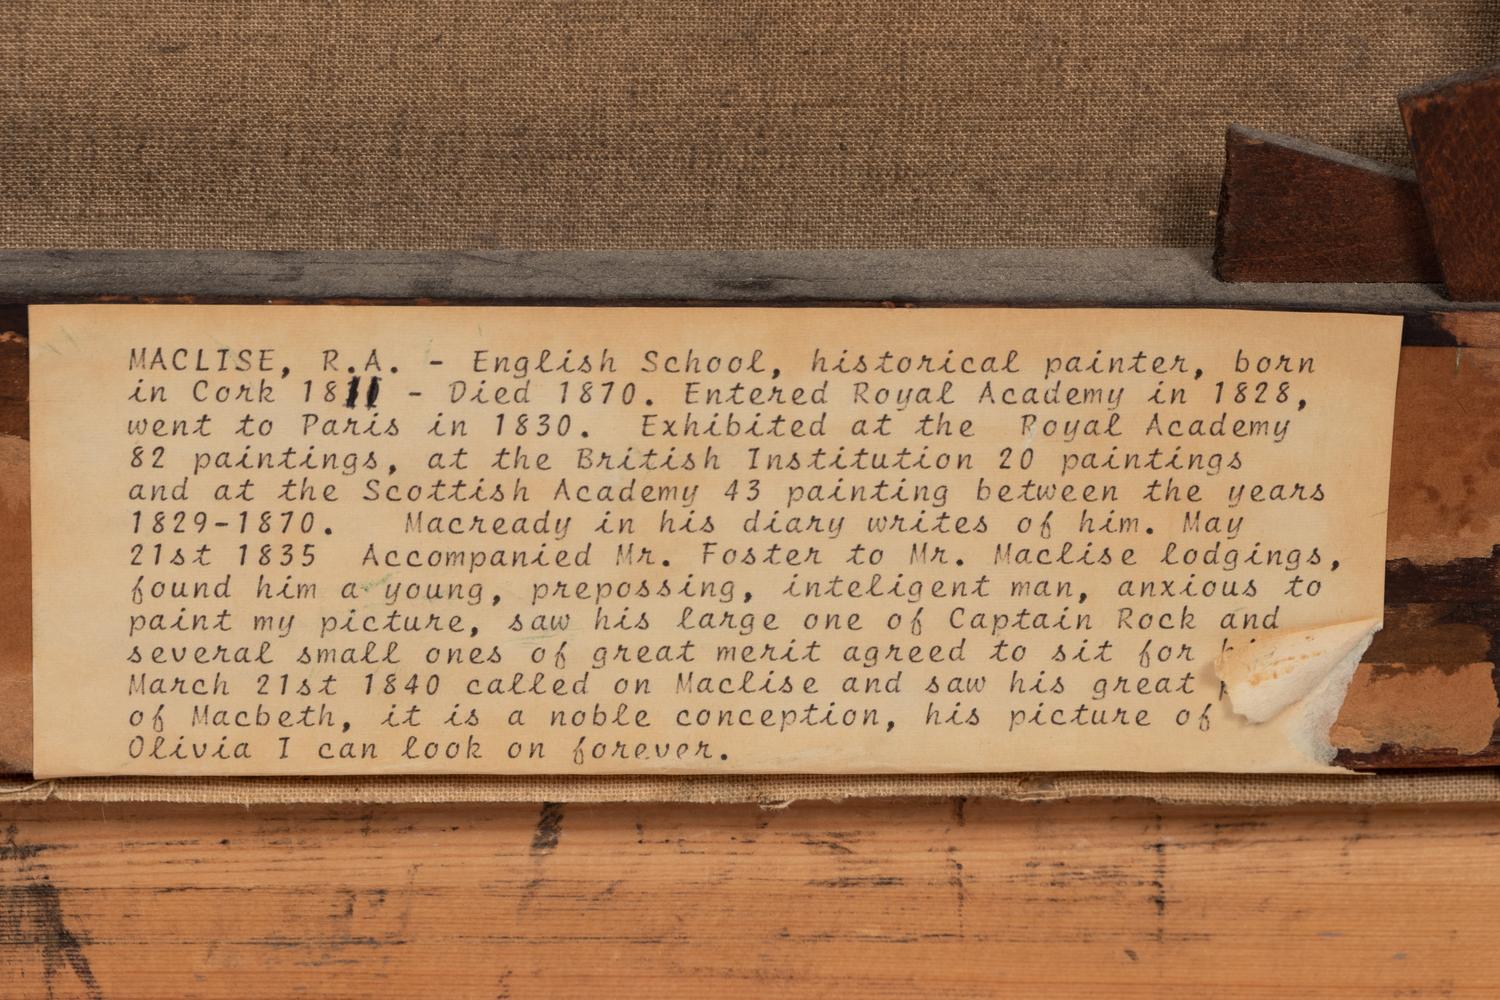 MACLISE, R.A. - English School, historical painter, born
in Cork 1811 - Died 1870. Entered Royal Academy in 1828,
went to Paris in 1830. Exhibited at the Royal Academy
82 paintings, at the British Institution 20 paintings
and at the Scottish Academy 43 painting between the years
1829-1870. Macready in his diary writes of him. May
21st 1835 Accompanied Mr. Foster to Mr. Maclise lodgings,
found him a young, prepossing, inteligent man, anxious to
paint my picture, saw his large one of Captain Rock and
several small ones of great merit agreed to sit for
March 21st 1840 called on Maclise and saw his great
of Macbeth, it is a noble conception, his picture of
Olivia I can look on forever.